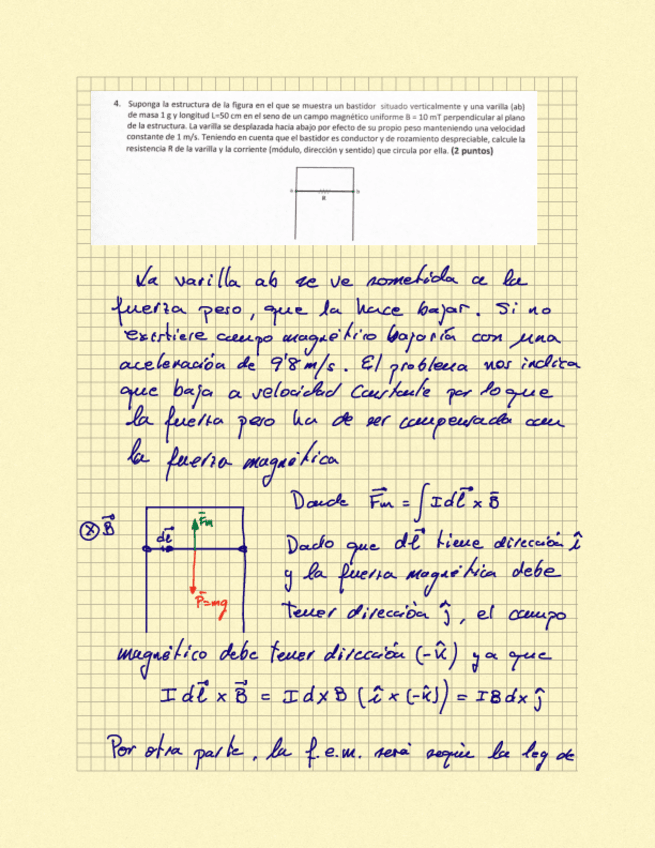 4. Suponga la estructura de la figura en el que se muestra un bastidor situado verticalmente y una varilla (ab)
de masa 1 g y longitud L=50 cm en el seno de un campo magnético uniforme B = 10 mT perpendicular al plano
de la estructura. La varilla se desplazada hacia abajo por efecto de su propio peso manteniendo una velocidad
constante de 1 m/s. Teniendo en cuenta que el bastidor es conductor y de rozamiento despreciable, calcule la
resistencia R de la varilla y la corriente (módulo, dirección y sentido) que circula por ella. (2 puntos)
a b
R
La varilla ab se ve sometida a la
fuerza peso, que la hace bajar. Si no
existiese campo magnético bajaría con una
aceleración de 9'8 m/s. El problema nos indica
que baja a velocidad constante por lo que
la fuerza peso ha de ser compensada con
la fuerza magnética
Donde F⃗m = ∫ I dℓ⃗ x B⃗
⊗ B⃗
dℓ⃗
F⃗m
P⃗=mg
Dado que dℓ⃗ tiene dirección î
y la fuerza magnética debe
tener dirección ĵ, el campo
magnético debe tener dirección (-k̂) ya que
I dℓ⃗ x B⃗ = I dx B (î x (-k̂)) = I B dx ĵ
Por otra parte, la f.e.m. será según la ley de